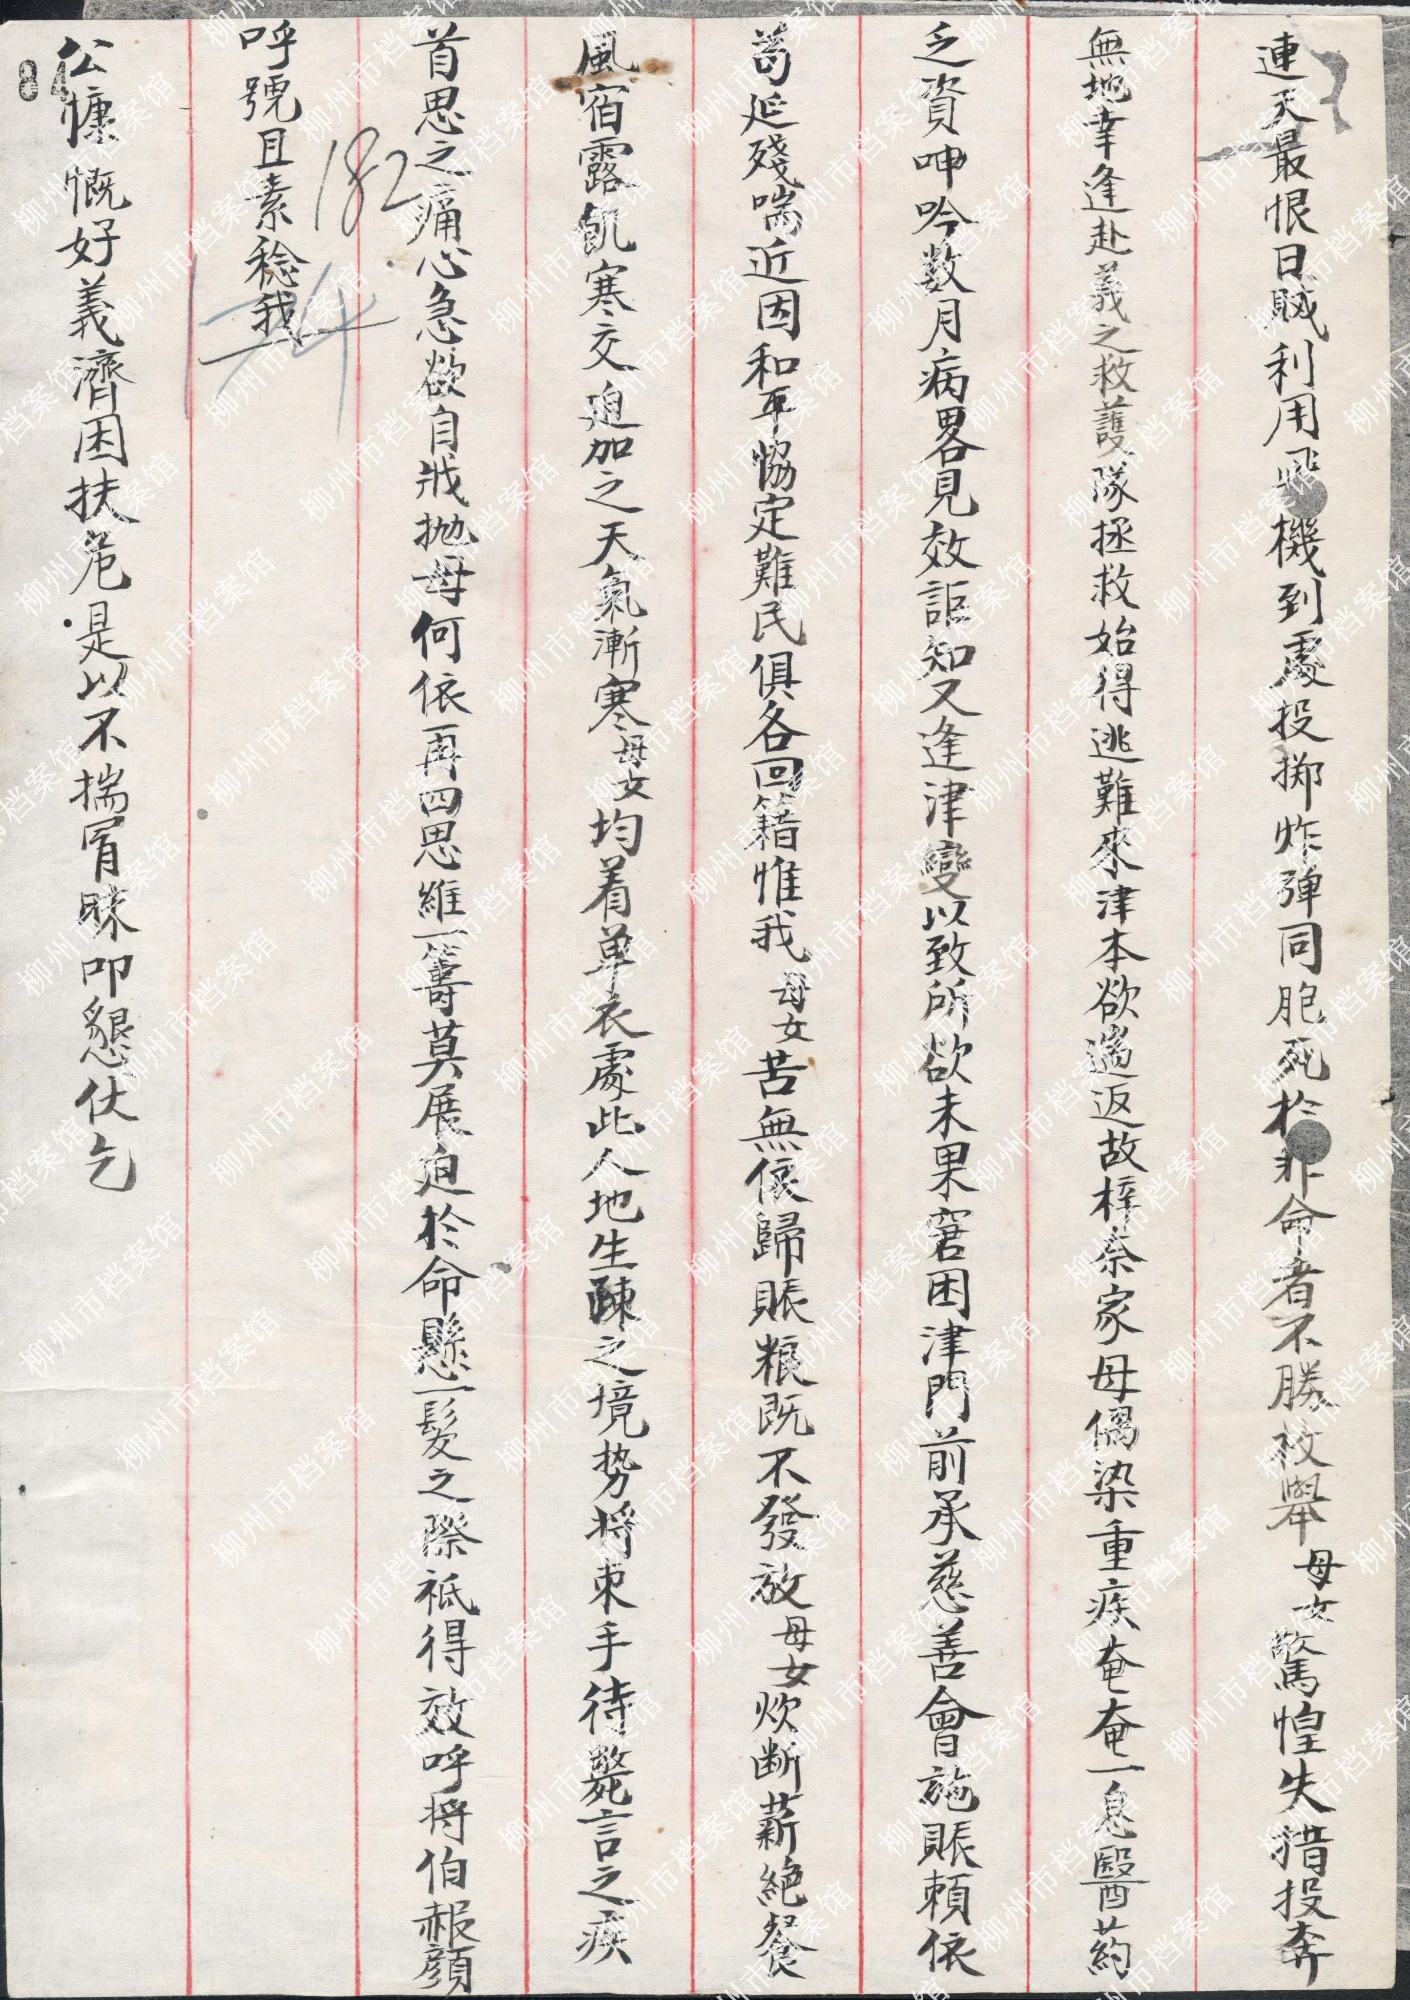 連天最恨日賊利用飛機到處投擲炸弹同胞死於非命者不勝枚舉母女驚惶失措投奔
無地幸逢赴義之救護隊拯救始得逃難來津本欲遄返故梓奈家母偶染重疾奄奄一息醫葯
乏資呻吟数月病畧見效詎知又逢津變以致所欲未果窘困津門前承慈善會施賑賴依
苟延殘喘近因和平協定難民俱各回籍惟我母女苦無依歸賑粮既不發放母女炊断薪絶餐
風宿露飢寒交迫加之天氣漸寒母女均着单衣處此人地生疎之境势将束手待斃言之疾
首思之痛心急欲自戕抛母何依再四思維一籌莫展迫於命懸一髮之際祇得效呼将伯赧顔
呼號且素稔我
公慷慨好義濟困扶危是以不揣冒昧叩懇伏乞
182
174
84
柳州市档案馆